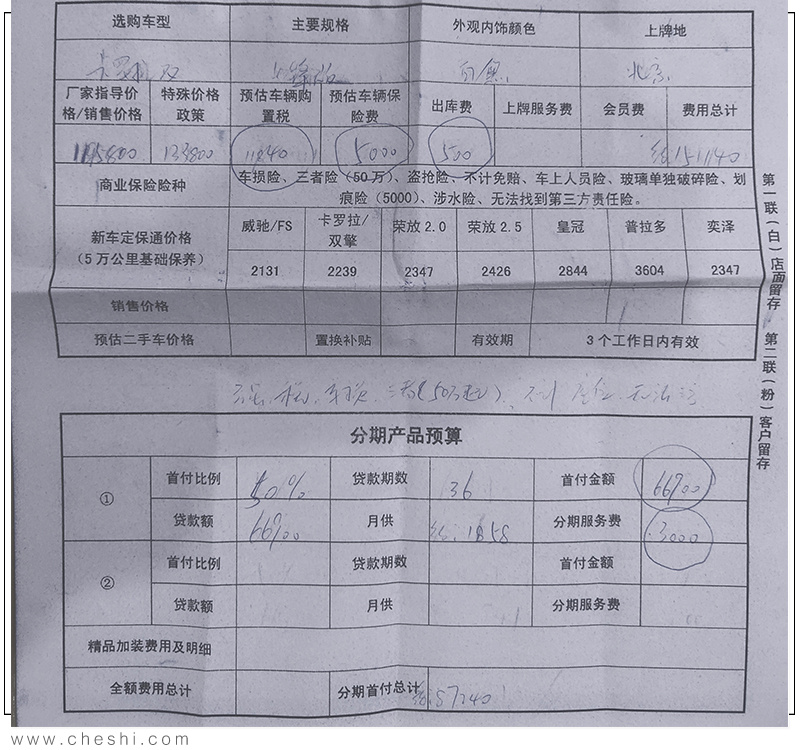 选购车型 主要规格 外观内饰颜色 上牌地
双 北京
厂家指导价格/销售价格 特殊价格政策 预估车辆购置税 预估车辆保险费 出库费 上牌服务费 会员费 费用总计
133800 5000 500 151140
商业保险险种 车损险、三者险(50万)、盗抢险、不计免赔、车上人员险、玻璃单独破碎险、划
痕险(5000)、涉水险、无法找到第三方责任险。
新车定保通价格
(5万公里基础保养)
威驰/FS 卡罗拉/双擎 荣放2.0 荣放2.5 皇冠 普拉多 奕泽
2131 2239 2347 2426 2844 3604 2347
销售价格
预估二手车价格 置换补贴 有效期 3个工作日内有效
第一联(白)店面留存 第二联(粉)客户留存
分期产品预算
① 首付比例 50% 贷款期数 36 首付金额 66900
贷款额 66900 月供 1858 分期服务费 3000
② 首付比例 贷款期数 首付金额
贷款额 月供 分期服务费
精品加装费用及明细
全额费用总计 分期首付总计 87240
www.cheshi.com